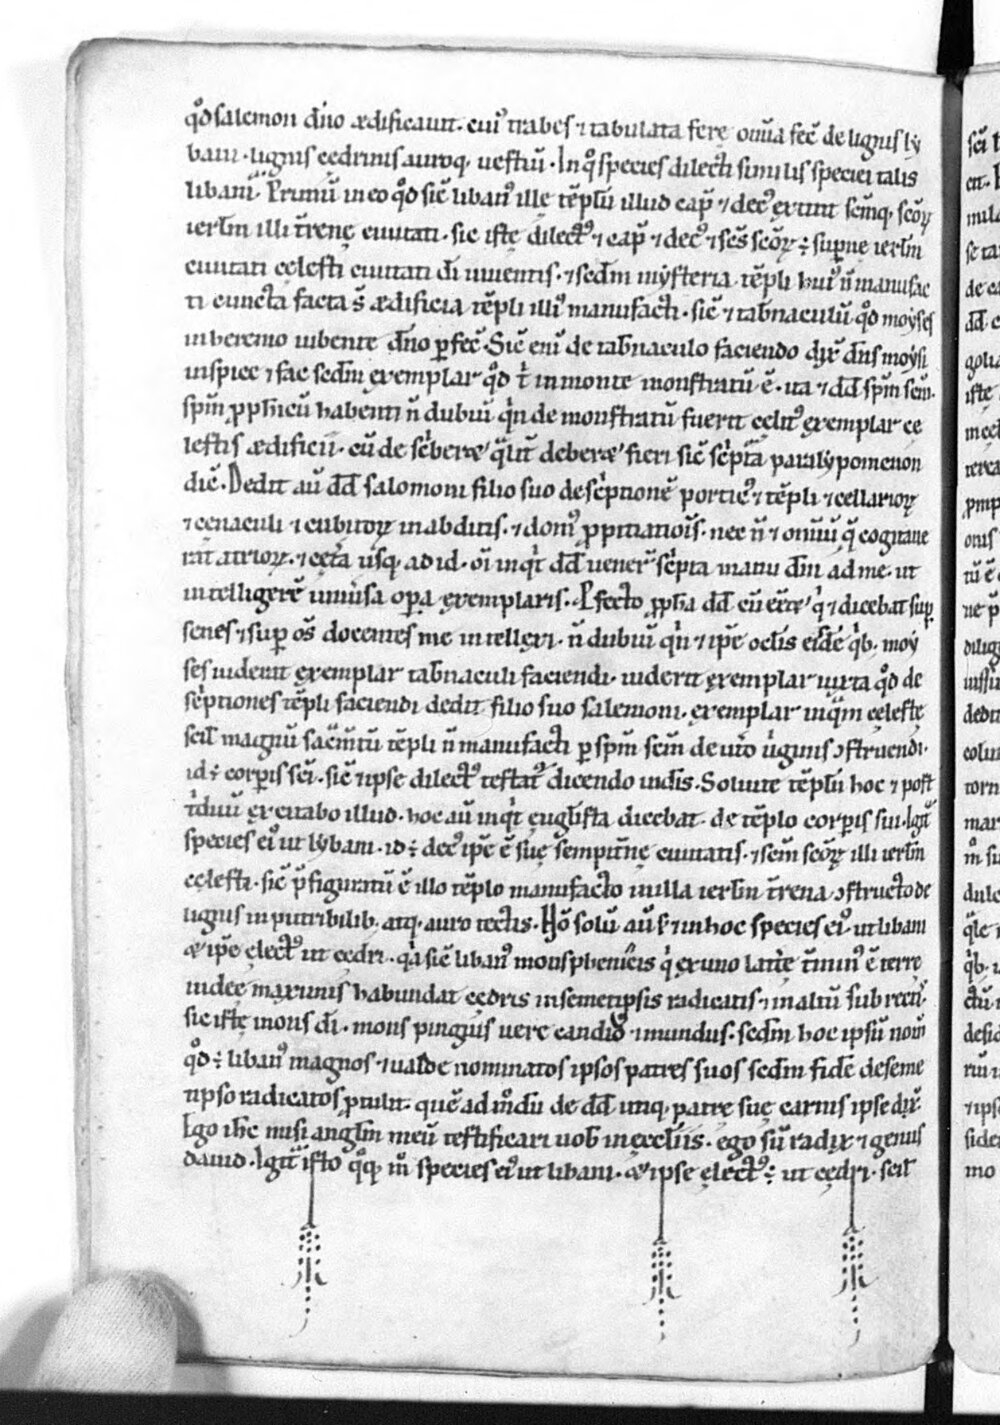 qđ salemon dño ædificauit. cui᷒ trabes ⁊ tabulata fere om̄ia fec̄ de lignis ly
bani. lignis cedrinis auroq; uestiuı̄. In qͦ species dilecti similis speciei talis
libani. Primū in eo qđ sic̄ liban᷒ ille tēplū illud cap̄ ⁊ dec᷒ extitit scm̄q; scōꝝ
ierl̄m illi t̄rene ciuitati. sic iste dilect᷒ ⁊ cap̄ ⁊ dec᷒ ⁊ scs̄ scōꝝ ÷ sup̄ne ierl̄m
ciuitati celesti ciuitati dī uiuentis. ⁊ scdm̄ mysteria tēpli hui᷒ ñ manufac
ti cuncta facta s̄ ædificia tēpli illi᷒ manufacti. sic̄ ⁊ tab̄naculū qđ moyses
in heremo iubente dño ꝑfec̄. Sic̄ enī de tab̄naculo faciendo dix̄ dn̄s moysi
inspice ⁊ fac scdm̄ exemplar qđ t̄ in monte monstratū ē. ita ⁊ dd̄ spm̄ scm̄.
spm̄ ꝓph̄icū habenti ñ dubiū qn̄ de monstratū fuerit celit᷒ exemplar ce
lestis ædificii. cū de sc̄beret̄ qlit̄ deberet̄ fieri sic̄ sc̄pta paralypomenon
dic̄. Dedit aū dd̄ salomoni filio suo desc̄ptionē portic᷒ ⁊ tēpli ⁊ cellarioꝝ
⁊ cenaculi ⁊ cubitoꝝ in abditis. ⁊ dom᷒ ꝓpitiatiois̄. nec ñ ⁊ om̄iū q̄ cogitaue
rat̄ atrioꝝ. ⁊ cet̄a usq; ad id. oı̄a inqt̄ dd̄ uener̄ sc̄pta manu dn̄i ad me. ut
intelligerē uniūsa oꝑa exemplaris. Ꝓfecto ꝓph̄a dd̄ cū eēt q̄ ⁊ dicebat suꝑ
senes ⁊ suꝑ os̄ docentes me intellexi. ñ dubiū qn̄ ⁊ ip̄e oclis̄ eisdē qb; moy
ses uiderit exemplar tab̄naculi faciendi. uiderit exemplar iuxta qđ de
sc̄ptiones tēpli faciendi dedit filio suo salemoni. exemplar inqm̄ celeste
scil̄ magnū sac̄m̄tū tēpli ñ manufacti ꝑ spm̄ scm̄ de ut̄o uirginis ↄstruendi.
id÷ corꝑis sc̄i. sic̄ ⁊ ipse dilect᷒ testat᷒ dicendo iudeis̄. Soluite tēplū hoc ⁊ post
t̄duū excitabo illud. hoc aū inqt̄ eugl̄ista dicebat de tēplo corꝑis sui. Igit̄
species ei᷒ ut lybani. id÷ dec᷒ ip̄e ē sue sempit̄ne ciuitatis. ⁊ scm̄ scōꝝ illi ierl̄m
celesti. sic̄ p̄figuratū ē illo tēplo manufacto in illa ierl̄m t̄rena ↄstructo de
lignis inputribilib; atq; auro tectis. Nō solū aū s; ⁊ in hoc species ei᷒. ut libani
⁊ ip̄e elect᷒ ut cedri. qa sic̄ liban᷒ mons phenicis q̄ ex uno lat̄e t̄min᷒ ē terre
iudee maximis habundat cedris in semetipsis radicatis ⁊ in altū subrectis.
sic iste mons dī. mons pinguis uere candid᷒ ⁊ mundus. scdm̄ hoc ipsū nom̄
qđ÷ liban᷒ magnos ⁊ ualde nominatos ipsos patres suos scdm̄ fidē de seme
tipso radicatos ꝓtulit. quē ad m̄dū de dd̄ utiq; patre sue carnis ipse dix̄.
Ego ih̄c misi angl̄m meū testificari uob̄ in eccl̄iis. ego sū radix ⁊ genus
dauid. Igit̄ isto qq; m̄ species ei᷒ ut libani. ⁊ ipse elect᷒ ÷ ut cedri. scil̄